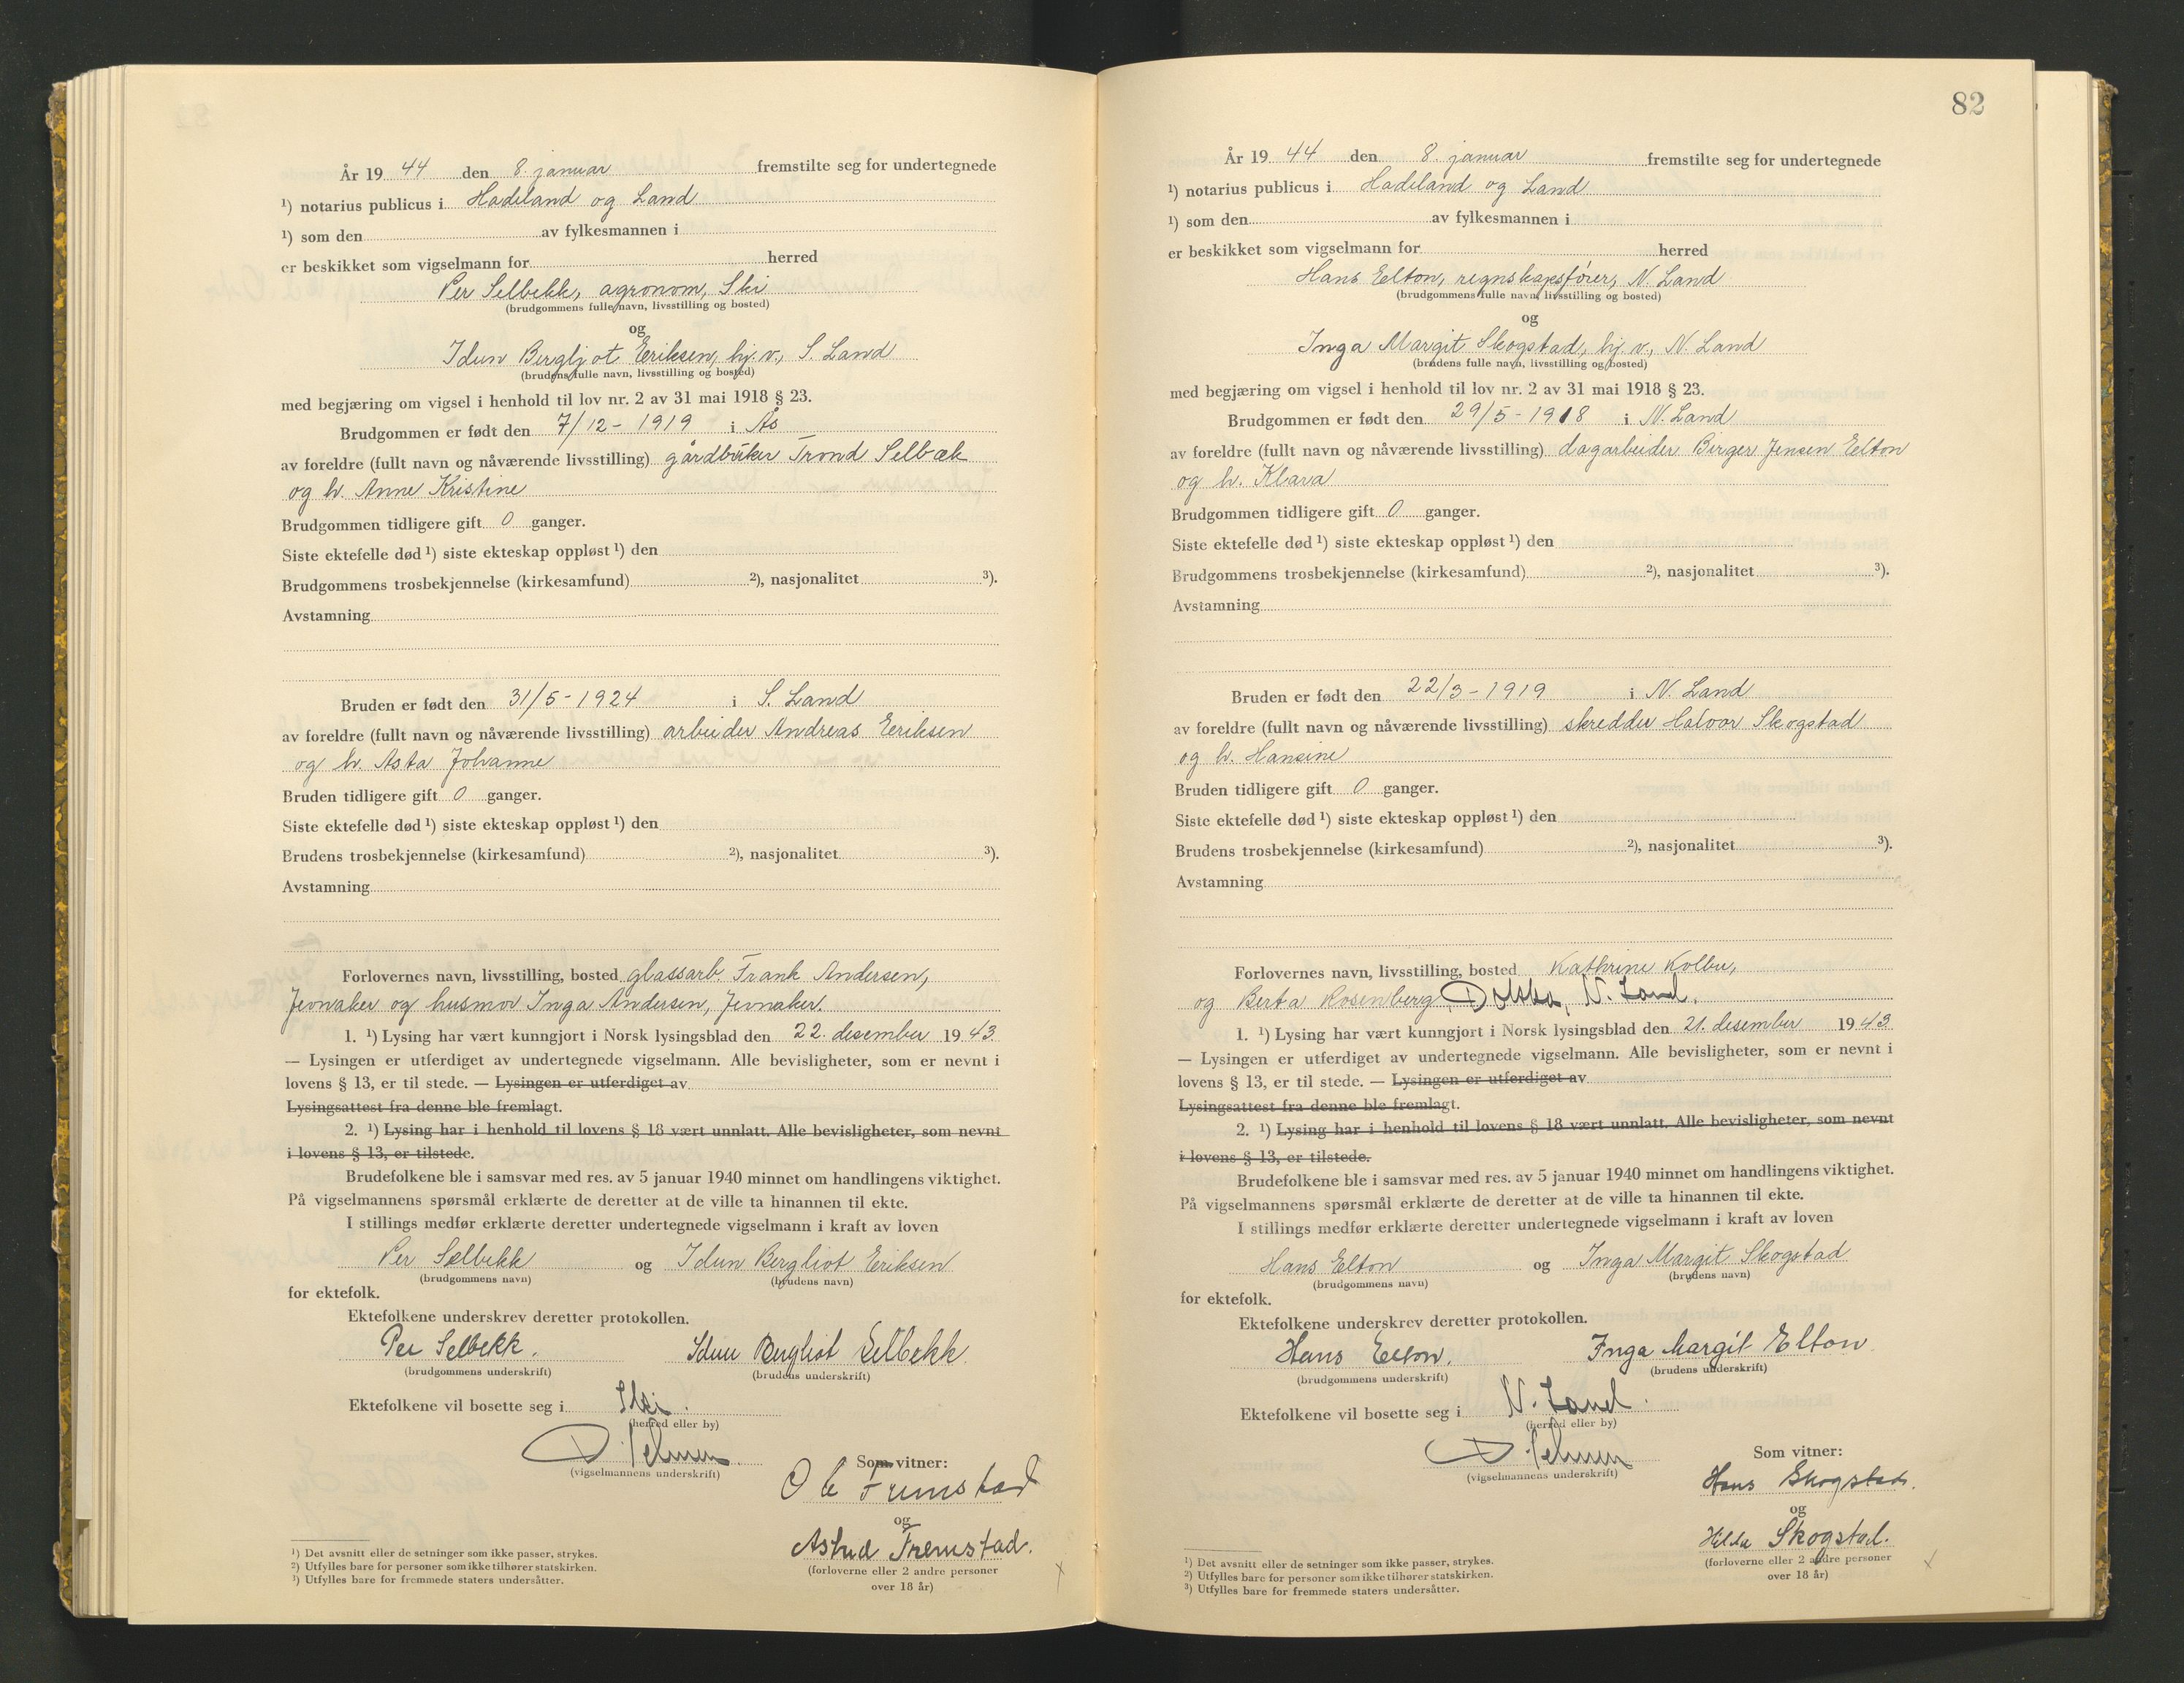 År 19 44 den 8. januar fremstilte seg for undertegnede
¹) notarius publicus i Hadeland og Land
¹) som den av fylkesmannen i
er beskikket som vigselmann for herred
Per Selbekk, agronom, Ski
(brudgommens fulle navn, livsstilling og bosted)
og
Idun Bergljot Eriksen, hj.v., S. Land
(brudens fulle navn, livsstilling og bosted)
med begjæring om vigsel i henhold til lov nr. 2 av 31 mai 1918 § 23.
Brudgommen er født den 7/12 - 1919 i Ås
av foreldre (fullt navn og nåværende livsstilling) gårdbruker Trond Selbæk
og h. Anne Kristine
Brudgommen tidligere gift 0 ganger.
Siste ektefelle død ¹) siste ekteskap oppløst ¹) den
Brudgommens trosbekjennelse (kirkesamfund) ²), nasjonalitet ³).
Avstamning
Bruden er født den 31/5 - 1924 i S. Land
av foreldre (fullt navn og nåværende livsstilling) arbeider Andreas Eriksen
og h. Asta Johanne
Bruden tidligere gift 0 ganger.
Siste ektefelle død ¹) siste ekteskap oppløst ¹) den
Brudens trosbekjennelse (kirkesamfund) ²), nasjonalitet ³).
Avstamning
Forlovernes navn, livsstilling, bosted glassarb. Frank Andersen,
Jevnaker og husmor Inga Andersen, Jevnaker.
1. ¹) Lysing har vært kunngjort i Norsk lysingsblad den 22. desember 19 43
— Lysingen er utferdiget av undertegnede vigselmann. Alle bevisligheter, som er nevnt i
lovens § 13, er til stede. — Lysingen er utferdiget av
Lysingsattest fra denne ble fremlagt.
2. ¹) Lysing har i henhold til lovens § 18 vært unnlatt. Alle bevisligheter, som nevnt
i lovens § 13, er tilstede.
Brudefolkene ble i samsvar med res. av 5 januar 1940 minnet om handlingens viktighet.
På vigselmannens spørsmål erklærte de deretter at de ville ta hinannen til ekte.
I stillings medfør erklærte deretter undertegnede vigselmann i kraft av loven
Per Selbekk og Idun Bergliot Eriksen
(brudgommens navn) (brudens navn)
for ektefolk.
Ektefolkene underskrev deretter protokollen.
Per Selbekk. Idun Bergliot Selbekk
(brudgommens underskrift) (brudens underskrift)
Ektefolkene vil bosette seg i Ski.
(herred eller by)
(vigselmannens underskrift)
Som vitner:
Ole Fremstad
og
Astrid Fremstad.
(forloverne eller 2 andre personer
over 18 år)
¹) Det avsnitt eller de setninger som ikke passer, strykes.
²) Utfylles bare for personer som ikke tilhører statskirken.
³) Utfylles bare for fremmede staters undersåtter.
82
År 19 44 den 8. januar fremstilte seg for undertegnede
¹) notarius publicus i Hadeland og Land
¹) som den av fylkesmannen i
er beskikket som vigselmann for herred
Hans Elton, regnskapsfører, N. Land
(brudgommens fulle navn, livsstilling og bosted)
og
Inga Margit Skogstad, hj.v., N. Land
(brudens fulle navn, livsstilling og bosted)
med begjæring om vigsel i henhold til lov nr. 2 av 31 mai 1918 § 23.
Brudgommen er født den 29/5 - 1918 i N. Land
av foreldre (fullt navn og nåværende livsstilling) dagarbeider Birger Jensen Elton
og h. Klara
Brudgommen tidligere gift 0 ganger.
Siste ektefelle død ¹) siste ekteskap oppløst ¹) den
Brudgommens trosbekjennelse (kirkesamfund) ²), nasjonalitet ³).
Avstamning
Bruden er født den 22/3 - 1919 i N. Land
av foreldre (fullt navn og nåværende livsstilling) skredder Halvor Skogstad
og h. Hansine
Bruden tidligere gift 0 ganger.
Siste ektefelle død ¹) siste ekteskap oppløst ¹) den
Brudens trosbekjennelse (kirkesamfund) ²), nasjonalitet ³).
Avstamning
Forlovernes navn, livsstilling, bosted Kathrine Kolbu,
og Berta Rosenberg, Dokka, N. Land.
1. ¹) Lysing har vært kunngjort i Norsk lysingsblad den 21. desember 19 43
— Lysingen er utferdiget av undertegnede vigselmann. Alle bevisligheter, som er nevnt i
lovens § 13, er til stede. — Lysingen er utferdiget av
Lysingsattest fra denne ble fremlagt.
2. ¹) Lysing har i henhold til lovens § 18 vært unnlatt. Alle bevisligheter, som nevnt
i lovens § 13, er tilstede.
Brudefolkene ble i samsvar med res. av 5 januar 1940 minnet om handlingens viktighet.
På vigselmannens spørsmål erklærte de deretter at de ville ta hinannen til ekte.
I stillings medfør erklærte deretter undertegnede vigselmann i kraft av loven
Hans Elton og Inga Margit Skogstad
(brudgommens navn) (brudens navn)
for ektefolk.
Ektefolkene underskrev deretter protokollen.
Hans Elton. Inga Margit Elton
(brudgommens underskrift) (brudens underskrift)
Ektefolkene vil bosette seg i N. Land.
(herred eller by)
(vigselmannens underskrift)
Som vitner:
Hans Skogstad.
og
Hilda Skogstad.
(forloverne eller 2 andre personer
over 18 år)
¹) Det avsnitt eller de setninger som ikke passer, strykes.
²) Utfylles bare for personer som ikke tilhører statskirken.
³) Utfylles bare for fremmede staters undersåtter.